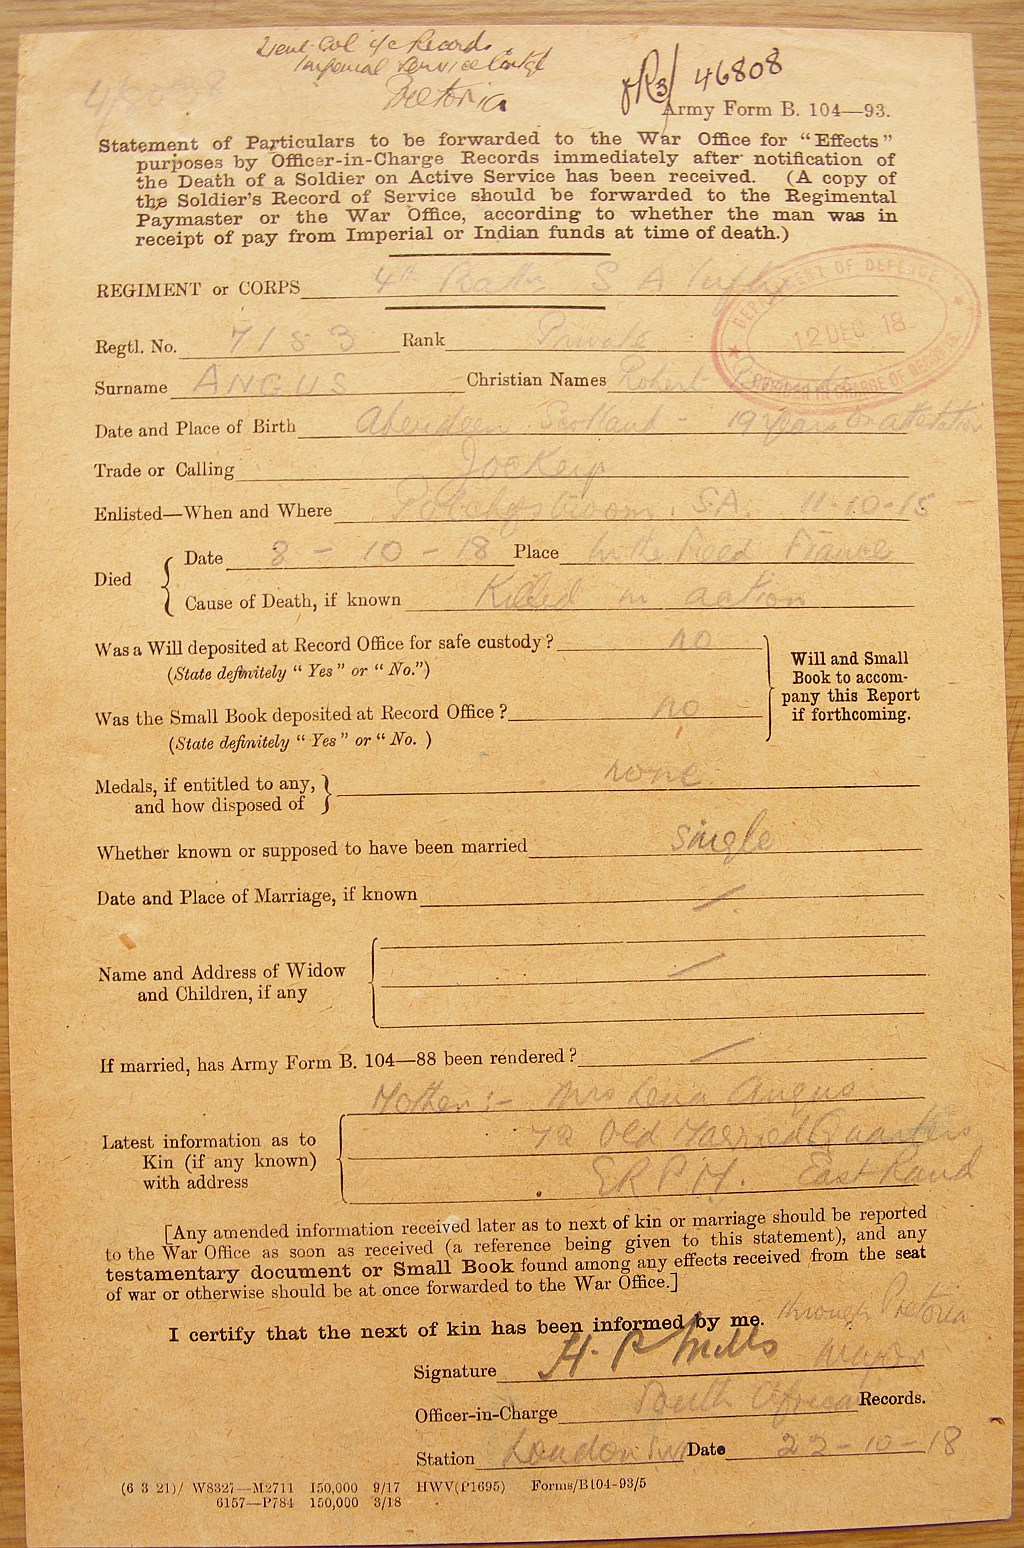 Lieut-Col i/c Records
Imperial Service
Pretoria
46808
Army Form B. 104—93.
Statement of Particulars to be forwarded to the War Office for “Effects”
purposes by Officer-in-Charge Records immediately after notification of
the Death of a Soldier on Active Service has been received. (A copy of
the Soldier's Record of Service should be forwarded to the Regimental
Paymaster or the War Office, according to whether the man was in
receipt of pay from Imperial or Indian funds at time of death.)
REGIMENT or CORPS 4th Battn S A Inftry
DEPARTMENT OF DEFENCE
12 DEC 18
Regtl. No. 7153 Rank Private
Surname ANGUS Christian Names Robert
Date and Place of Birth Aberdeen Scotland - 19 years on attestation
Trade or Calling Jockey
Enlisted—When and Where Potchefstroom. S.A. 11-10-15
Died { Date 8 - 10 - 18 Place In the Field France
Cause of Death, if known Killed in action
Was a Will deposited at Record Office for safe custody? no
(State definitely “ Yes ” or “ No.”)
Was the Small Book deposited at Record Office? no
(State definitely “ Yes ” or “ No. )
Will and Small
Book to accom-
pany this Report
if forthcoming.
Medals, if entitled to any,
and how disposed of } none
Whether known or supposed to have been married single
Date and Place of Marriage, if known /
Name and Address of Widow
and Children, if any /
If married, has Army Form B. 104—88 been rendered? /
Mother :- Mrs Lena Angus
Latest information as to
Kin (if any known)
with address
72 Old Married Quarters
E R P M. East Rand
[Any amended information received later as to next of kin or marriage should be reported
to the War Office as soon as received (a reference being given to this statement), and any
testamentary document or Small Book found among any effects received from the seat
of war or otherwise should be at once forwarded to the War Office.]
I certify that the next of kin has been informed by me. through Pretoria
Signature H. P Mills Major
Officer-in-Charge South African Records.
Station London Date 22-10-18
(6 3 21)/ W8327—M2711 150,000 9/17 HWV(P1695) Forms/B104-93/5
6157—P784 150,000 3/18